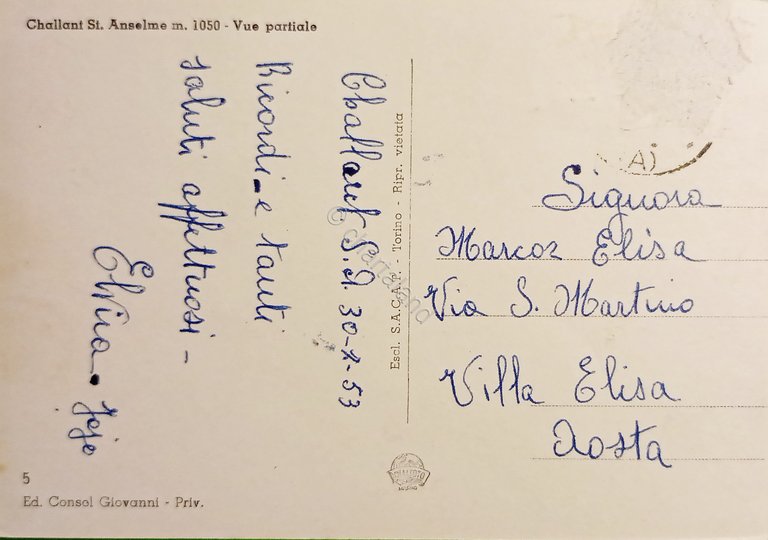 Challant St. Anselme m. 1050 - Vue partiale
Challant S.A. 30-7-53
Ricordi e tanti
saluti affettuosi -
Elvia. Jeje
Escl. S.A.C.A.T. - Torino - Ripr. vietata
A)
Signora
Marcoz Elisa
Via S. Martino
Villa Elisa
Aosta
5
Ed. Consol Giovanni - Priv.
© chartaland